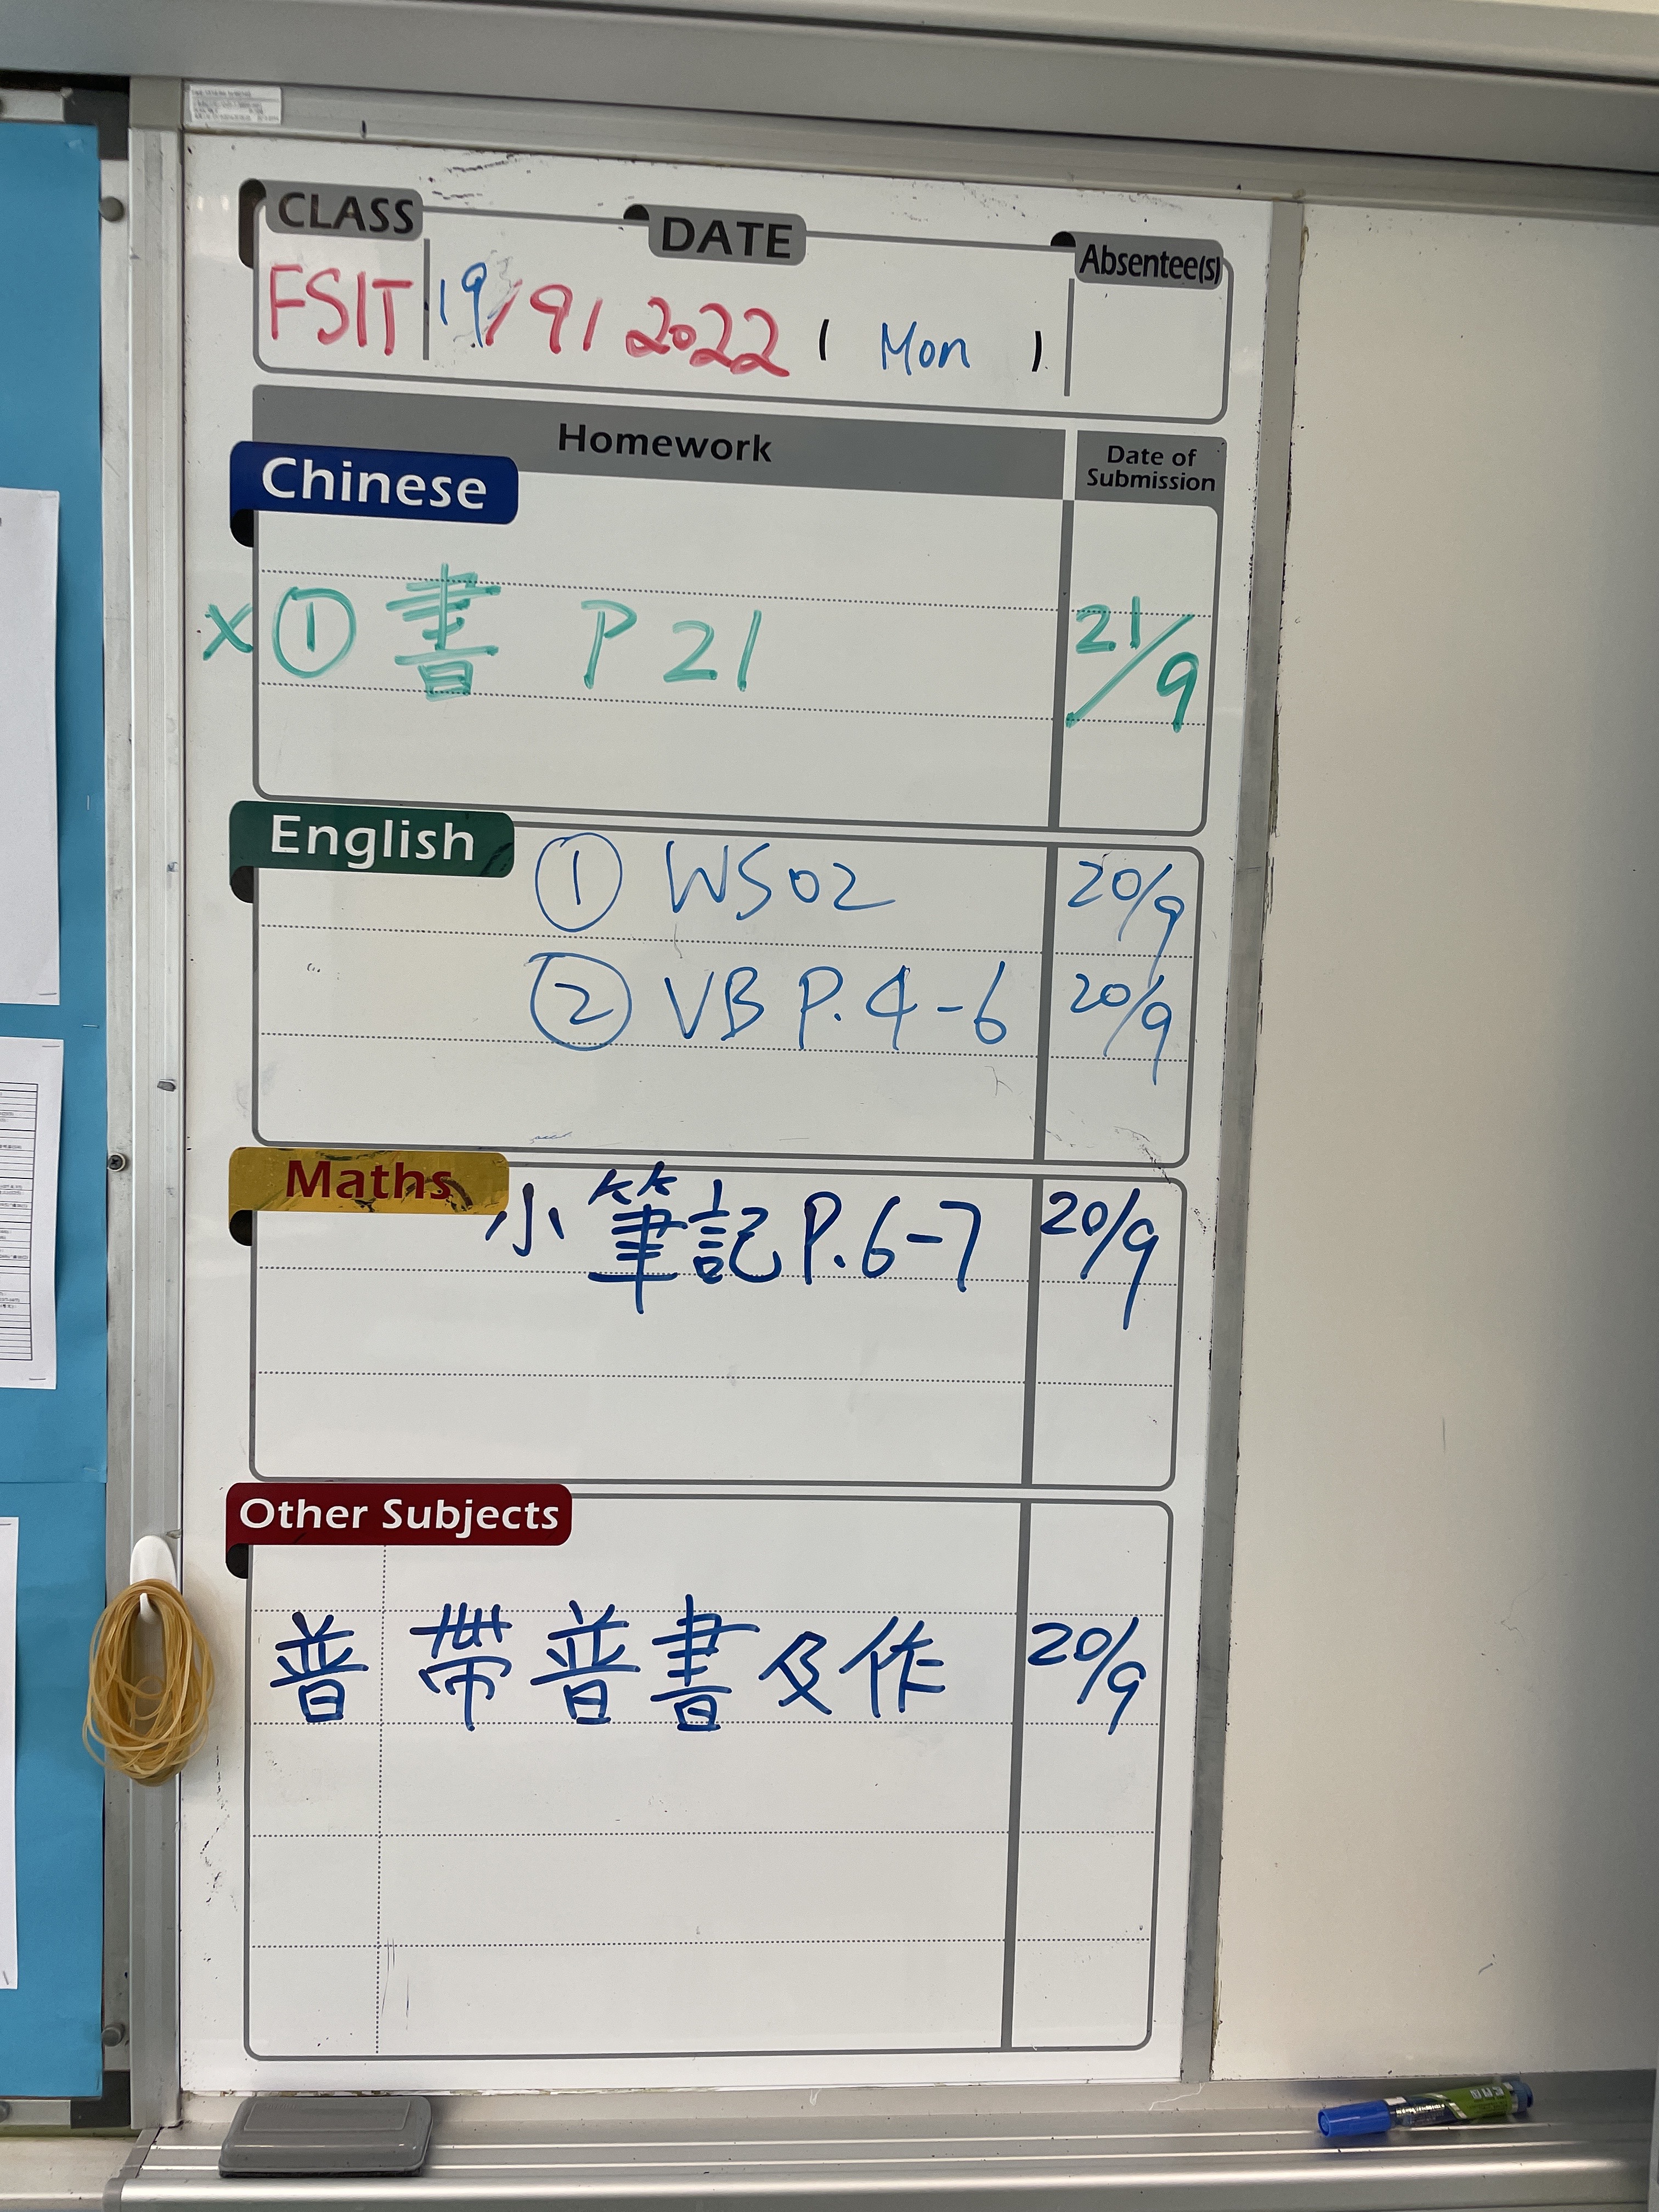 CLASS DATE Absentee(s)
FSIT 19/9/2022 ( Mon )
Homework Date of Submission
Chinese
x ① 書 P 21 21/9
English ① WS02 20/9
② VB P.4-6 20/9
Maths 小筆記P.6-7 20/9
Other Subjects
普 帶普書及作 20/9